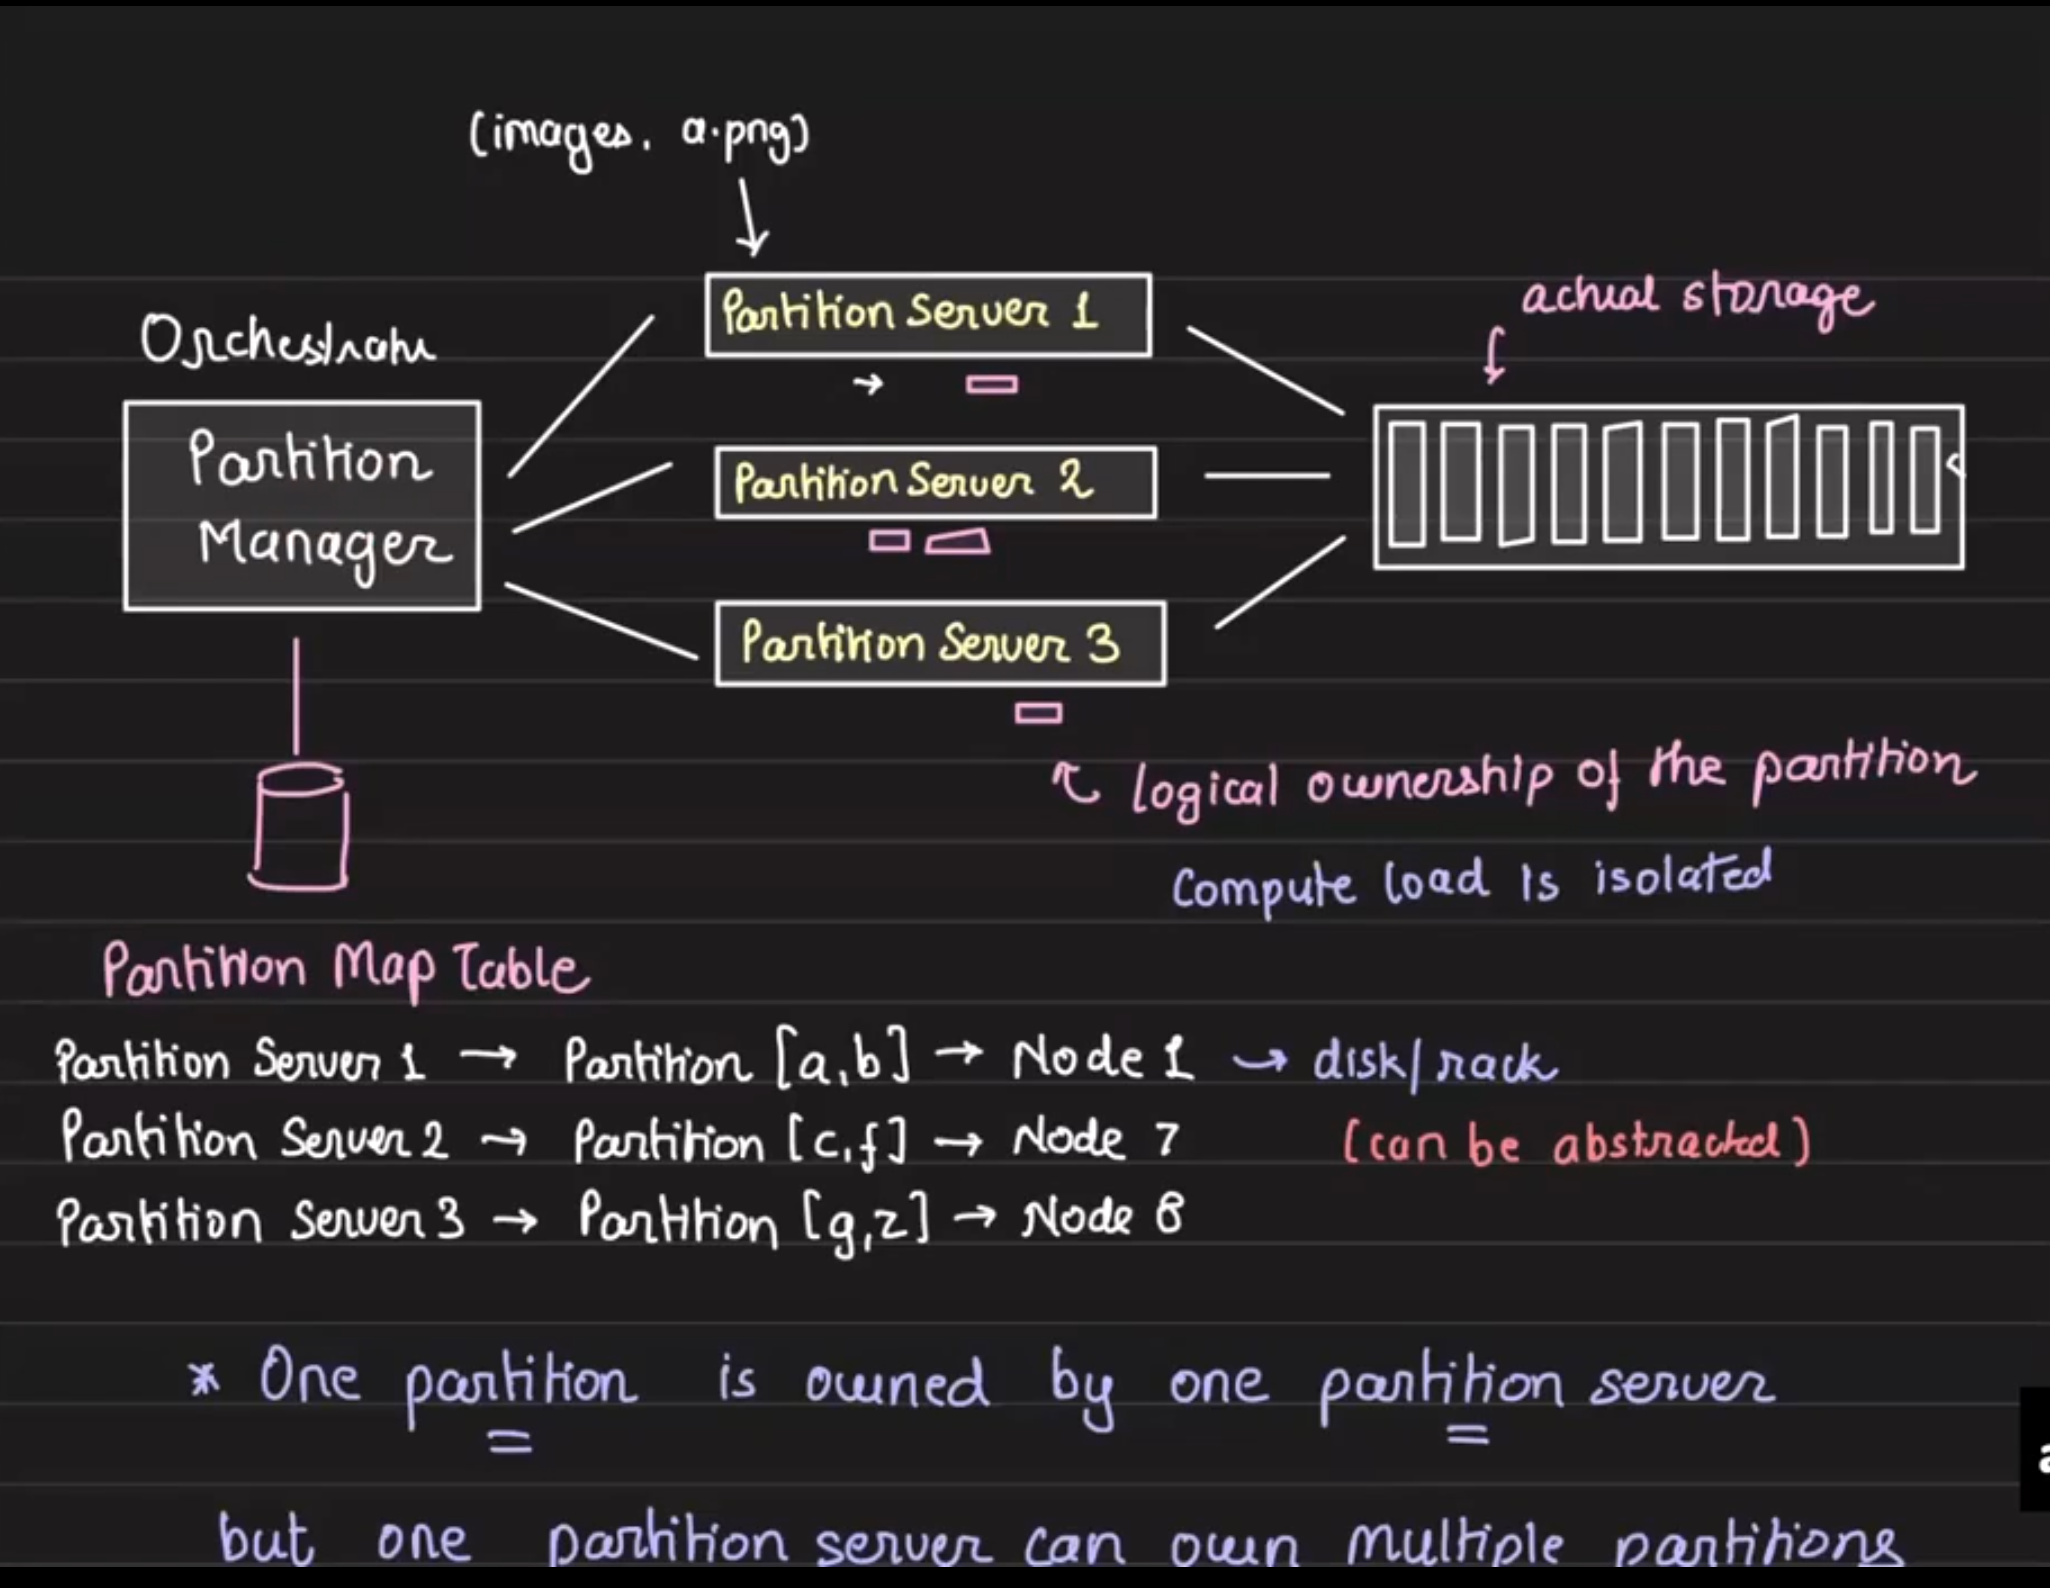 (images, a.png)
Orchestrator
Partition
Manager
Partition Server 1
Partition Server 2
Partition Server 3
actual storage
logical ownership of the partition
Compute load is isolated
Partition Map Table
Partition Server 1 → Partition [a,b] → Node 1 → disk/rack
Partition Server 2 → Partition [c,f] → Node 7 (can be abstracted)
Partition Server 3 → Partition [g,z] → Node 8
* One partition is owned by one partition server
but one partition server can own multiple partitions